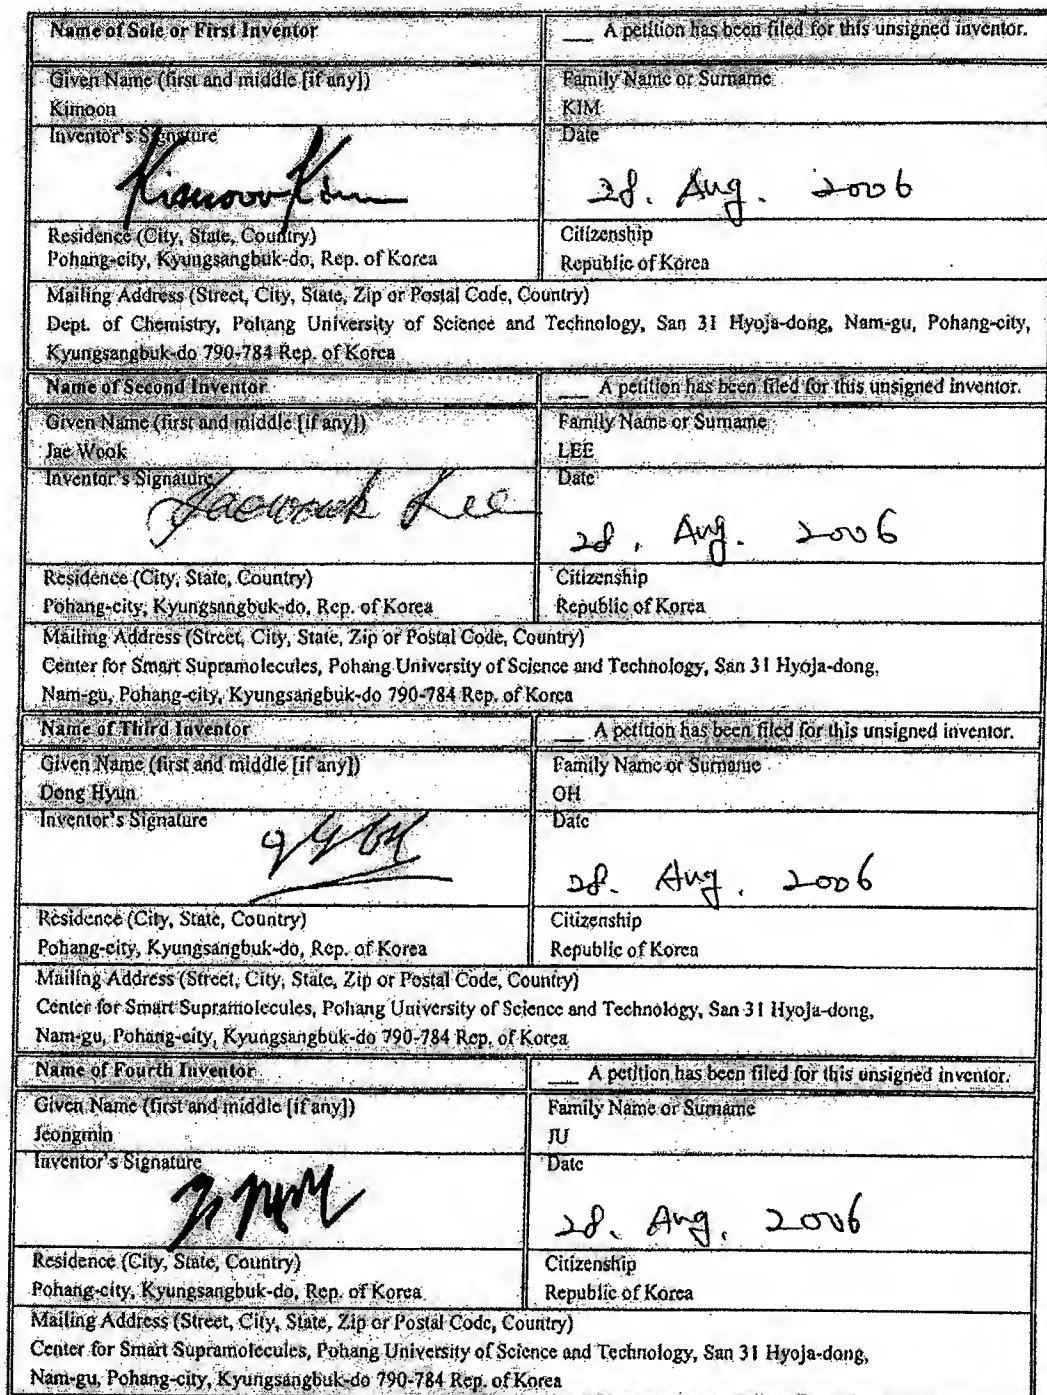 Name of Sole or First Inventor
___ A petition has been filed for this unsigned inventor.
Given Name (first and middle [if any])
Kimoon
Family Name or Surname
KIM
Inventor's Signature
Kimoon Kim
Date
28. Aug. 2006
Residence (City, State, Country)
Pohang-city, Kyungsangbuk-do, Rep. of Korea
Citizenship
Republic of Korea
Mailing Address (Street, City, State, Zip or Postal Code, Country)
Dept. of Chemistry, Pohang University of Science and Technology, San 31 Hyoja-dong, Nam-gu, Pohang-city,
Kyungsangbuk-do 790-784 Rep. of Korea
Name of Second Inventor
___ A petition has been filed for this unsigned inventor.
Given Name (first and middle [if any])
Jae Wook
Family Name or Surname
LEE
Inventor's Signature
Jaewook Lee
Date
28. Aug. 2006
Residence (City, State, Country)
Pohang-city, Kyungsangbuk-do, Rep. of Korea
Citizenship
Republic of Korea
Mailing Address (Street, City, State, Zip or Postal Code, Country)
Center for Smart Supramolecules, Pohang University of Science and Technology, San 31 Hyoja-dong,
Nam-gu, Pohang-city, Kyungsangbuk-do 790-784 Rep. of Korea
Name of Third Inventor
___ A petition has been filed for this unsigned inventor.
Given Name (first and middle [if any])
Dong Hyun
Family Name or Surname
OH
Inventor's Signature
Date
28. Aug. 2006
Residence (City, State, Country)
Pohang-city, Kyungsangbuk-do, Rep. of Korea
Citizenship
Republic of Korea
Mailing Address (Street, City, State, Zip or Postal Code, Country)
Center for Smart Supramolecules, Pohang University of Science and Technology, San 31 Hyoja-dong,
Nam-gu, Pohang-city, Kyungsangbuk-do 790-784 Rep. of Korea
Name of Fourth Inventor
___ A petition has been filed for this unsigned inventor.
Given Name (first and middle [if any])
Jeongmin
Family Name or Surname
JU
Inventor's Signature
Date
28. Aug. 2006
Residence (City, State, Country)
Pohang-city, Kyungsangbuk-do, Rep. of Korea
Citizenship
Republic of Korea
Mailing Address (Street, City, State, Zip or Postal Code, Country)
Center for Smart Supramolecules, Pohang University of Science and Technology, San 31 Hyoja-dong,
Nam-gu, Pohang-city, Kyungsangbuk-do 790-784 Rep. of Korea